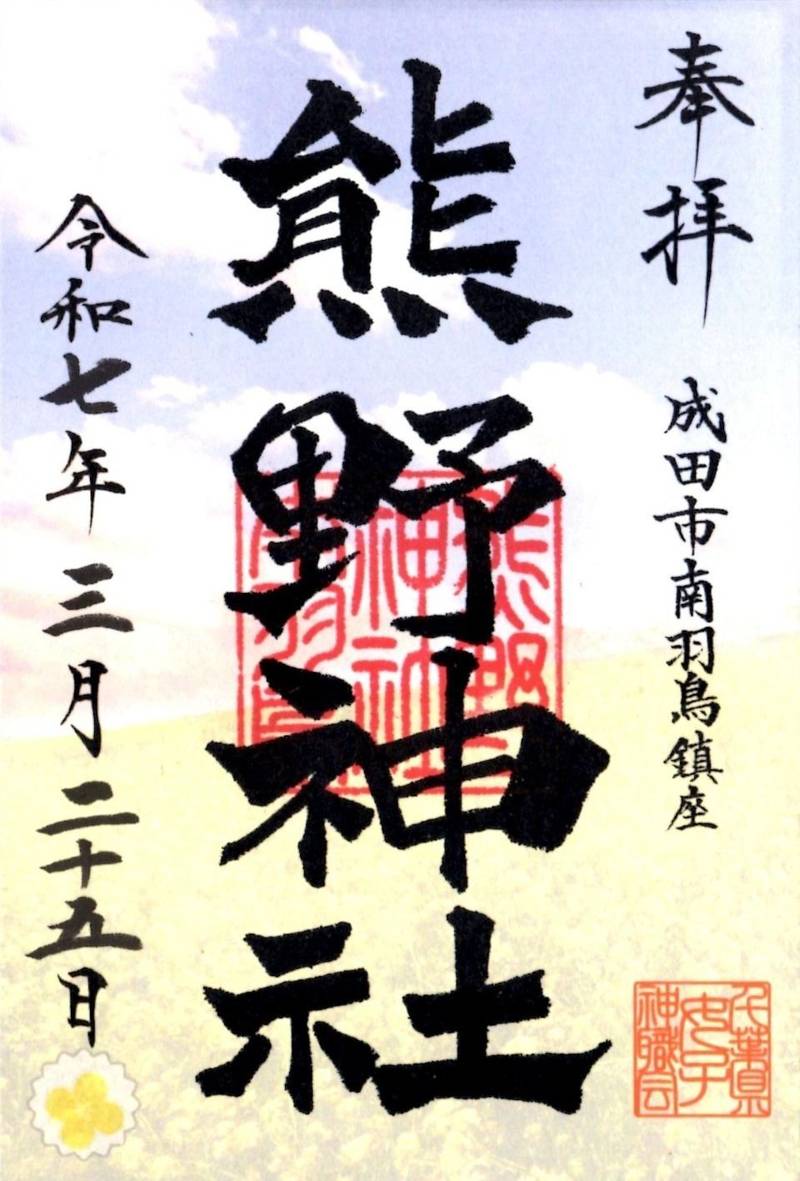 奉拝
成田市南羽鳥鎮座
熊野神社
熊野
神社
南羽鳥
令和七年 三月 二十五日
千葉県
女子
神職会